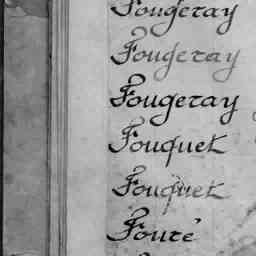 Fougeray
Fougeray
Fougeray
Fouquet
Fouquet
Fouré